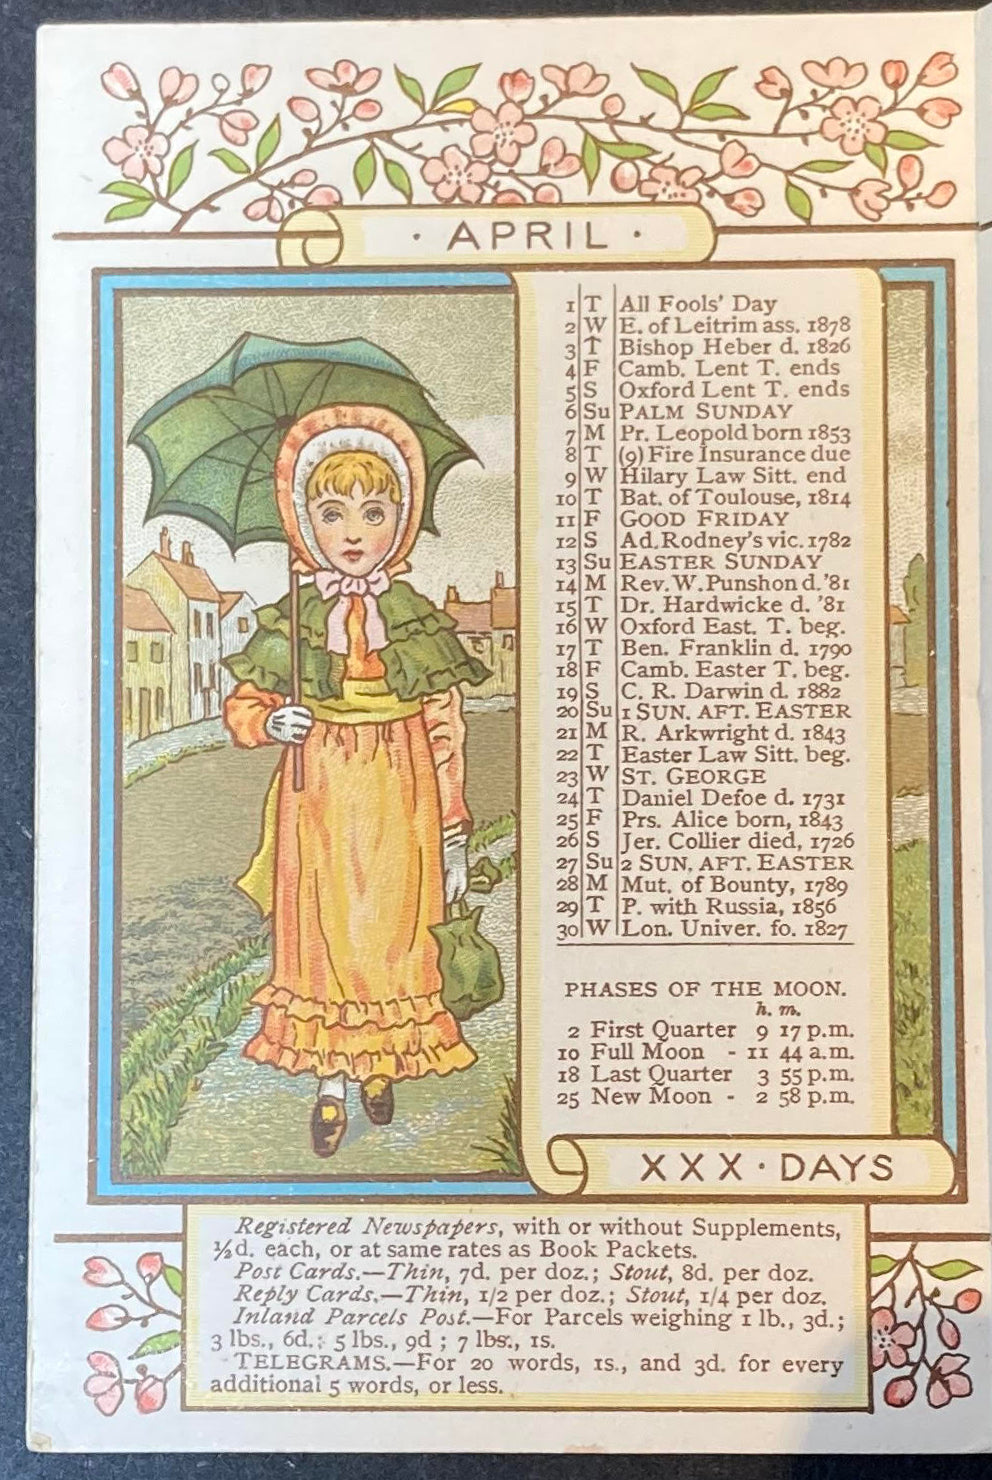 · APRIL ·
1 T All Fools' Day
2 W E. of Leitrim ass. 1878
3 T Bishop Heber d. 1826
4 F Camb. Lent T. ends
5 S Oxford Lent T. ends
6 Su PALM SUNDAY
7 M Pr. Leopold born 1853
8 T (9) Fire Insurance due
9 W Hilary Law Sitt. end
10 T Bat. of Toulouse, 1814
11 F GOOD FRIDAY
12 S Ad. Rodney's vic. 1782
13 Su EASTER SUNDAY
14 M Rev. W. Punshon d. '81
15 T Dr. Hardwicke d. '81
16 W Oxford East. T. beg.
17 T Ben. Franklin d. 1790
18 F Camb. Easter T. beg.
19 S C. R. Darwin d. 1882
20 Su 1 SUN. AFT. EASTER
21 M R. Arkwright d. 1843
22 T Easter Law Sitt. beg.
23 W ST. GEORGE
24 T Daniel Defoe d. 1731
25 F Prs. Alice born, 1843
26 S Jer. Collier died, 1726
27 Su 2 SUN. AFT. EASTER
28 M Mut. of Bounty, 1789
29 T P. with Russia, 1856
30 W Lon. Univer. fo. 1827
PHASES OF THE MOON.
h. m.
2 First Quarter 9 17 p.m.
10 Full Moon - 11 44 a.m.
18 Last Quarter 3 55 p.m.
25 New Moon - 2 58 p.m.
XXX · DAYS
Registered Newspapers, with or without Supplements,
½d. each, or at same rates as Book Packets.
Post Cards.—Thin, 7d. per doz.; Stout, 8d. per doz.
Reply Cards.—Thin, 1/2 per doz.; Stout, 1/4 per doz.
Inland Parcels Post.—For Parcels weighing 1 lb., 3d.;
3 lbs., 6d.; 5 lbs., 9d ; 7 lbs., 1s.
TELEGRAMS.—For 20 words, 1s., and 3d. for every
additional 5 words, or less.